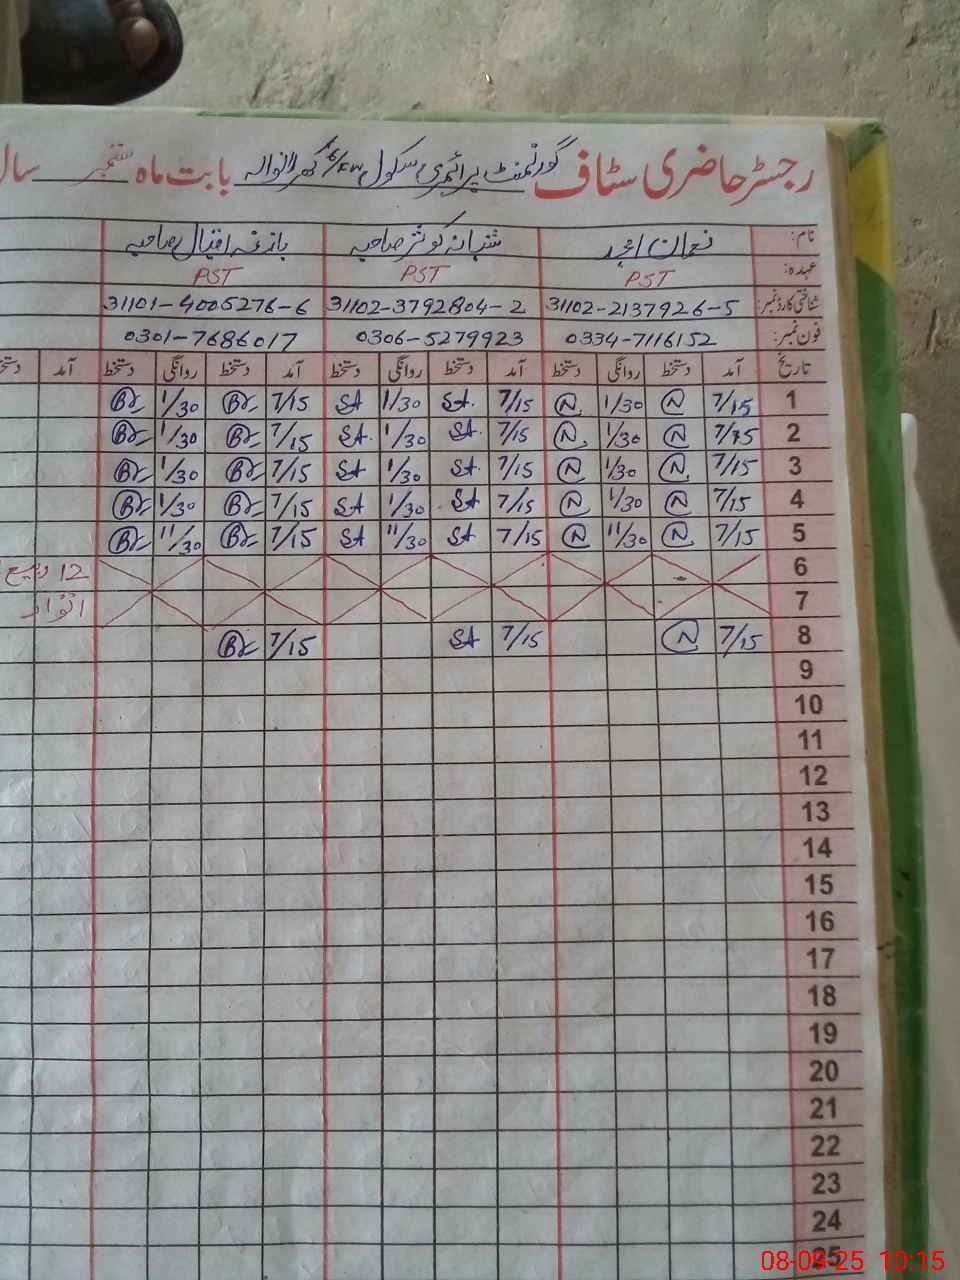 رجسٹر حاضری سٹاف گورنمنٹ پرائمری سکول بابت ماہ ستمبر سال
نام: نعمان امجد شبانہ کوثر صاحبہ بازغہ اقبال صاحبہ
عہدہ: PST PST PST
شناختی کارڈ نمبر: 31102-2137926-5 31102-3792804-2 31101-4005276-6
فون نمبر: 0334-7116152 0306-5279923 0301-7686017
تاریخ آمد دستخط روانگی دستخط آمد دستخط روانگی دستخط آمد دستخط روانگی دستخط آمد دستخط
1 7/15 N 1/30 N 7/15 SA 1/30 SA 7/15 Br 1/30 Br
2 7/15 N 1/30 N 7/15 SA 1/30 SA 7/15 Br 1/30 Br
3 7/15 N 1/30 N 7/15 SA 1/30 SA 7/15 Br 1/30 Br
4 7/15 N 1/30 N 7/15 SA 1/30 SA 7/15 Br 1/30 Br
5 7/15 N 11/30 N 7/15 SA 11/30 SA 7/15 Br 11/30 Br
6 12 ربیع
7 اتوار
8 7/15 N 7/15 SA 7/15 Br
9
10
11
12
13
14
15
16
17
18
19
20
21
22
23
24
25
08-09-25 10:15